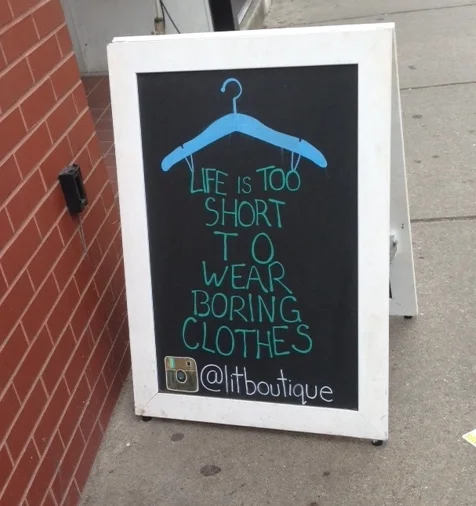 LIFE IS TOO
SHORT
TO
WEAR
BORING
CLOTHES
@litboutique